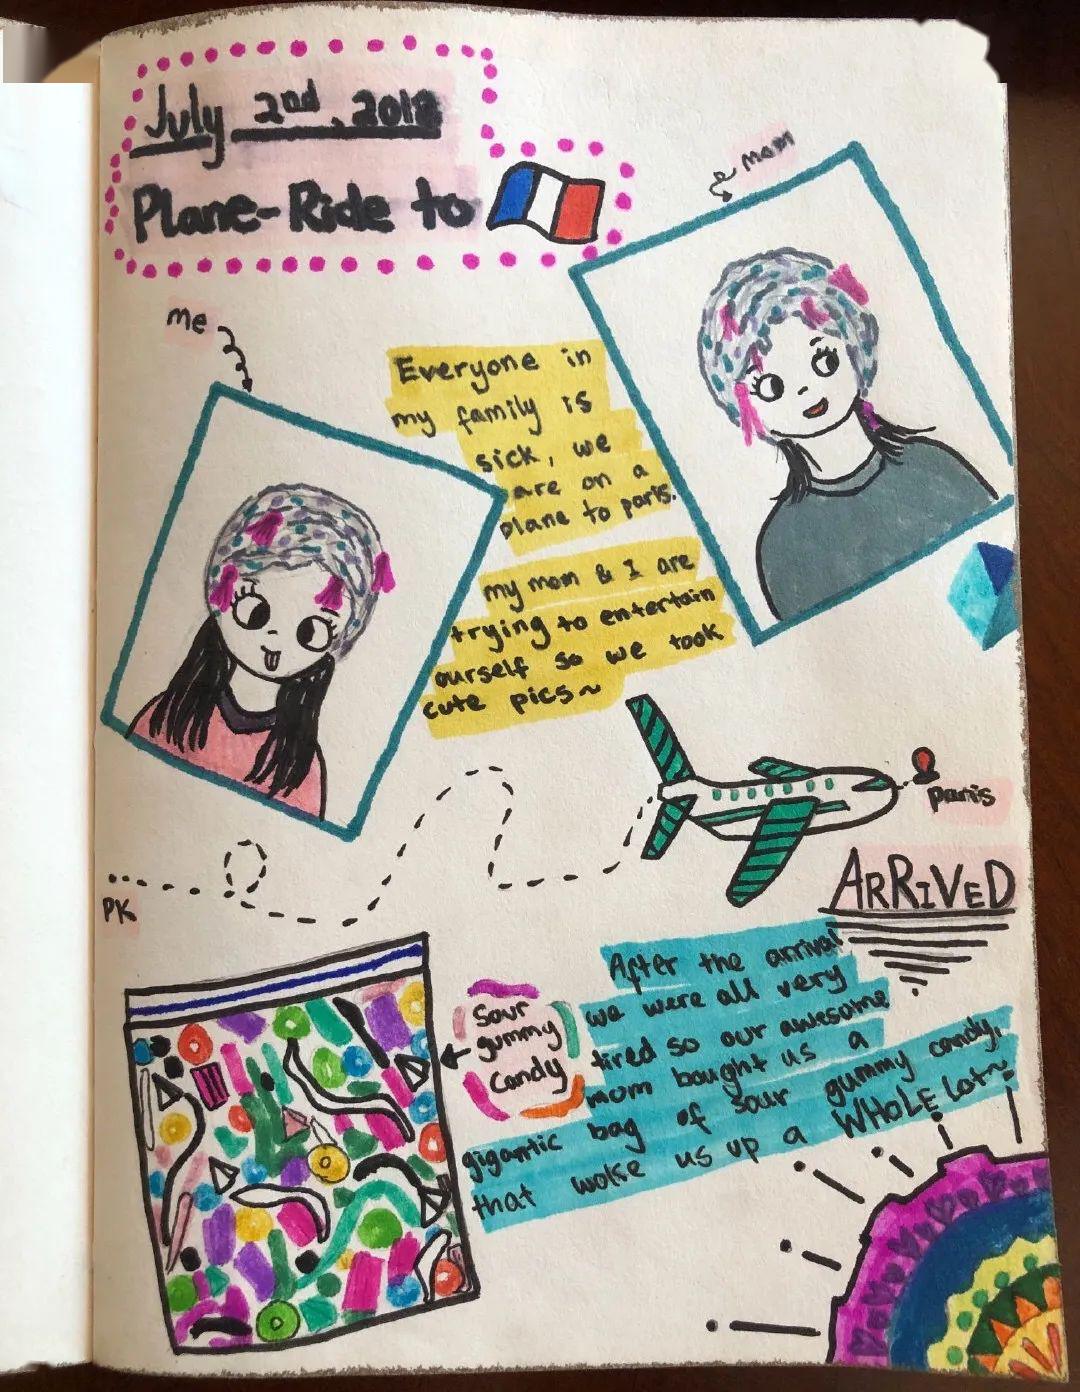 July 2nd, 2018
Plane-Ride to
mom
me
Everyone in
my family is
sick, we
are on a
plane to paris.
my mom & I are
trying to entertain
ourself so we took
cute pics~
paris
ARRIVED
PK
Sour
gummy
Candy
After the arrival
we were all very
tired so our awesome
mom bought us a
gigantic bag of sour gummy candy,
that woke us up a WHOLE lot~